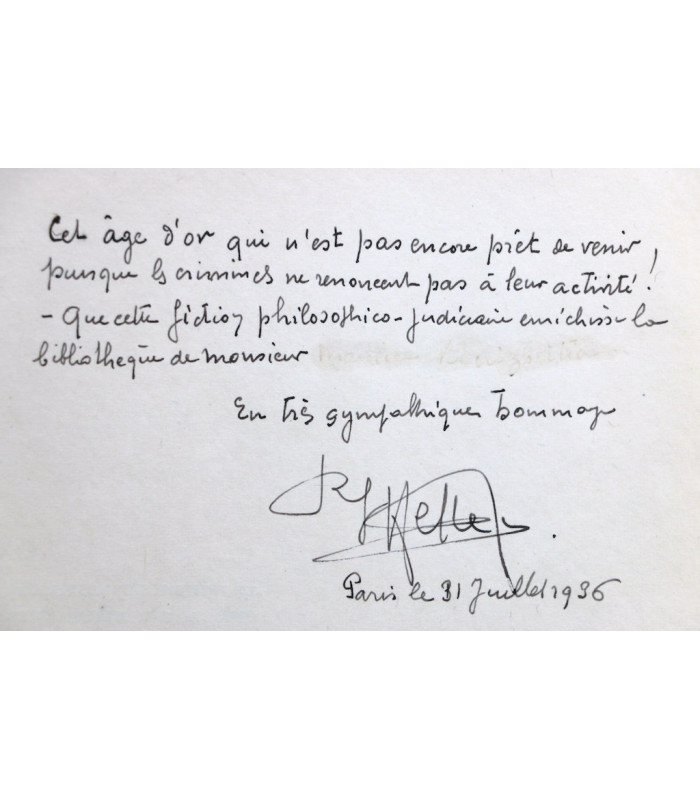 Cet âge d'or qui n'est pas encore prêt de venir,
puisque les criminels ne renoncent pas à leur activité !
- Que cette fiction philosophico-judiciaire enrichisse la
bibliothèque de monsieur
En très sympathique hommage
Paris le 31 Juillet 1936